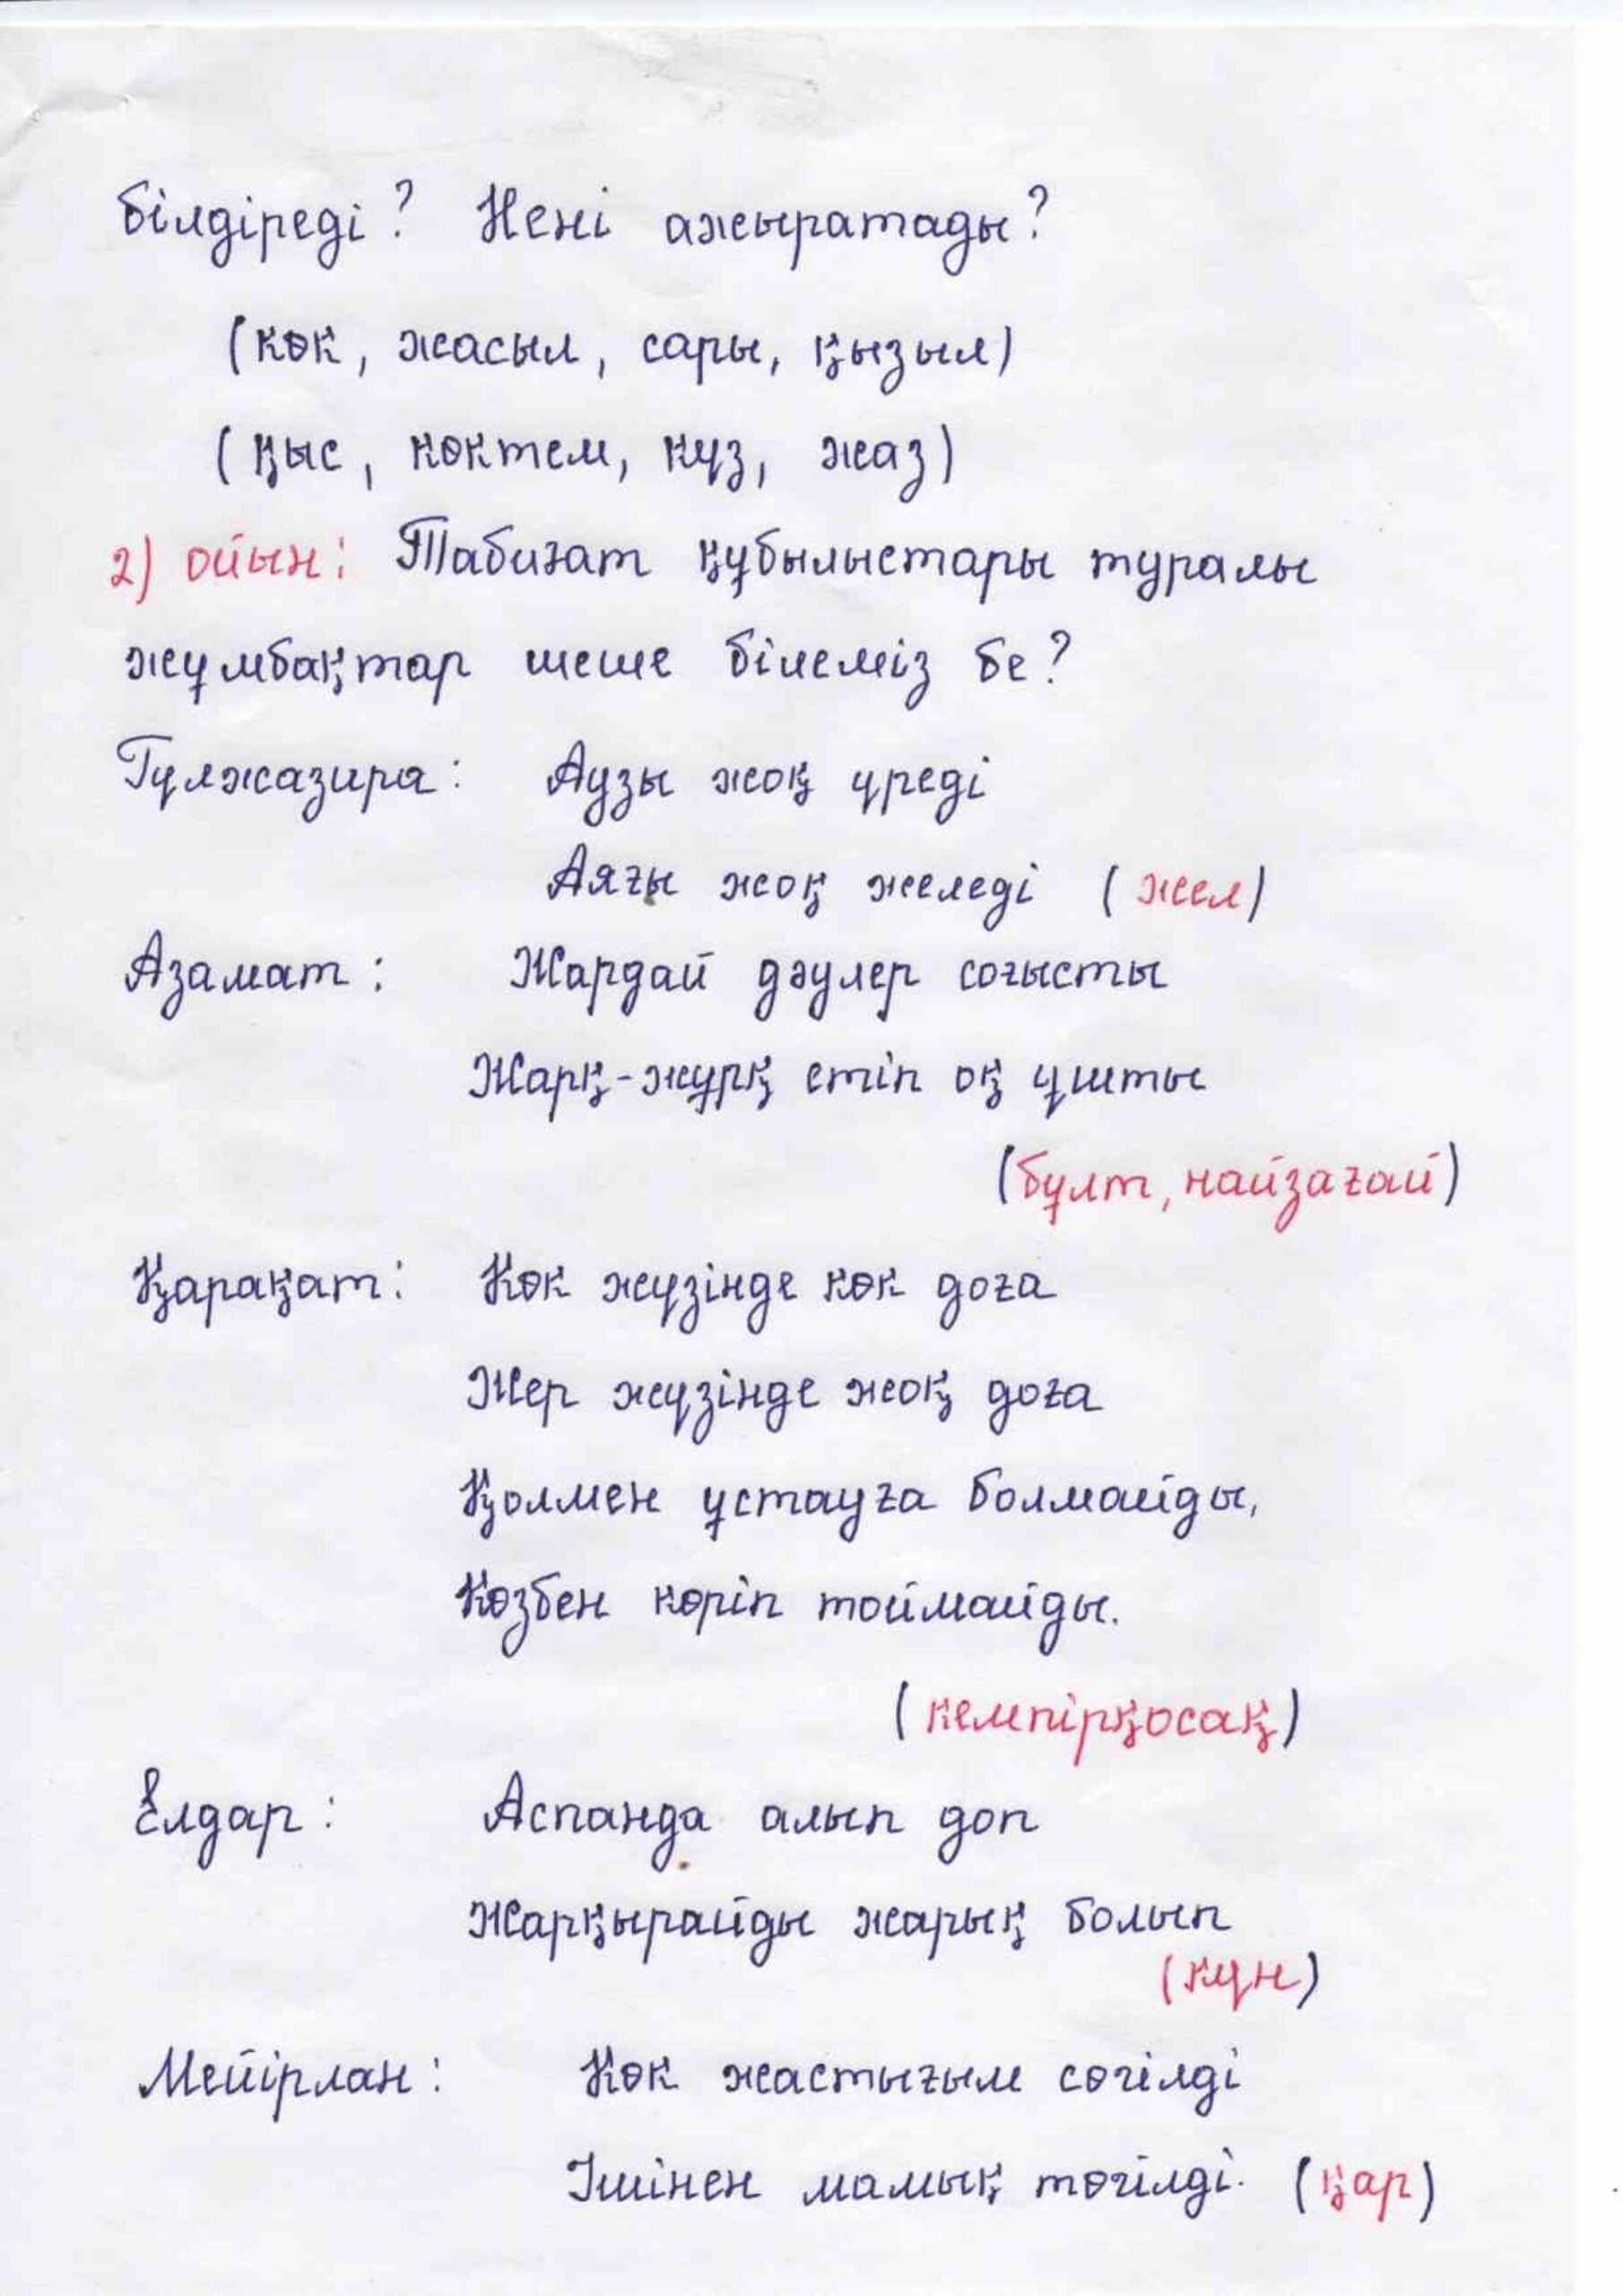 білдіреді? Нені ажыратады?
(көк, жасыл, сары, қызыл)
(қыс, көктем, күз, жаз)
2) ойын: Табиғат құбылыстары туралы
жұмбақтар шеше білеміз бе?
Гүлжазира: Аузы жоқ үреді
Аяғы жоқ желеді (жел)
Азамат: Жардай дәулер соғысты
Жарқ-жұрқ етіп оқ ұшты
(бұлт, найзағай)
Қарақат: Көк жүзінде көк доға
Жер жүзінде жоқ доға
Қолмен ұстауға болмайды,
Көзбен көріп тоймайды.
(кемпірқосақ)
Елдар: Аспанда алып доп
Жарқырайды жарық болып
(күн)
Мейірлан: Көк жастығым сөгілді
Ішінен мамық төгілді. (қар)